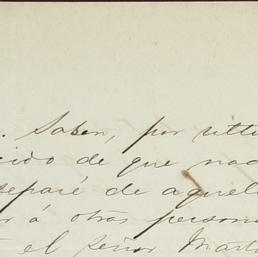 . Saben, por ulti
cido de que nad
separé de aquel
r á otras person
el señor Mart